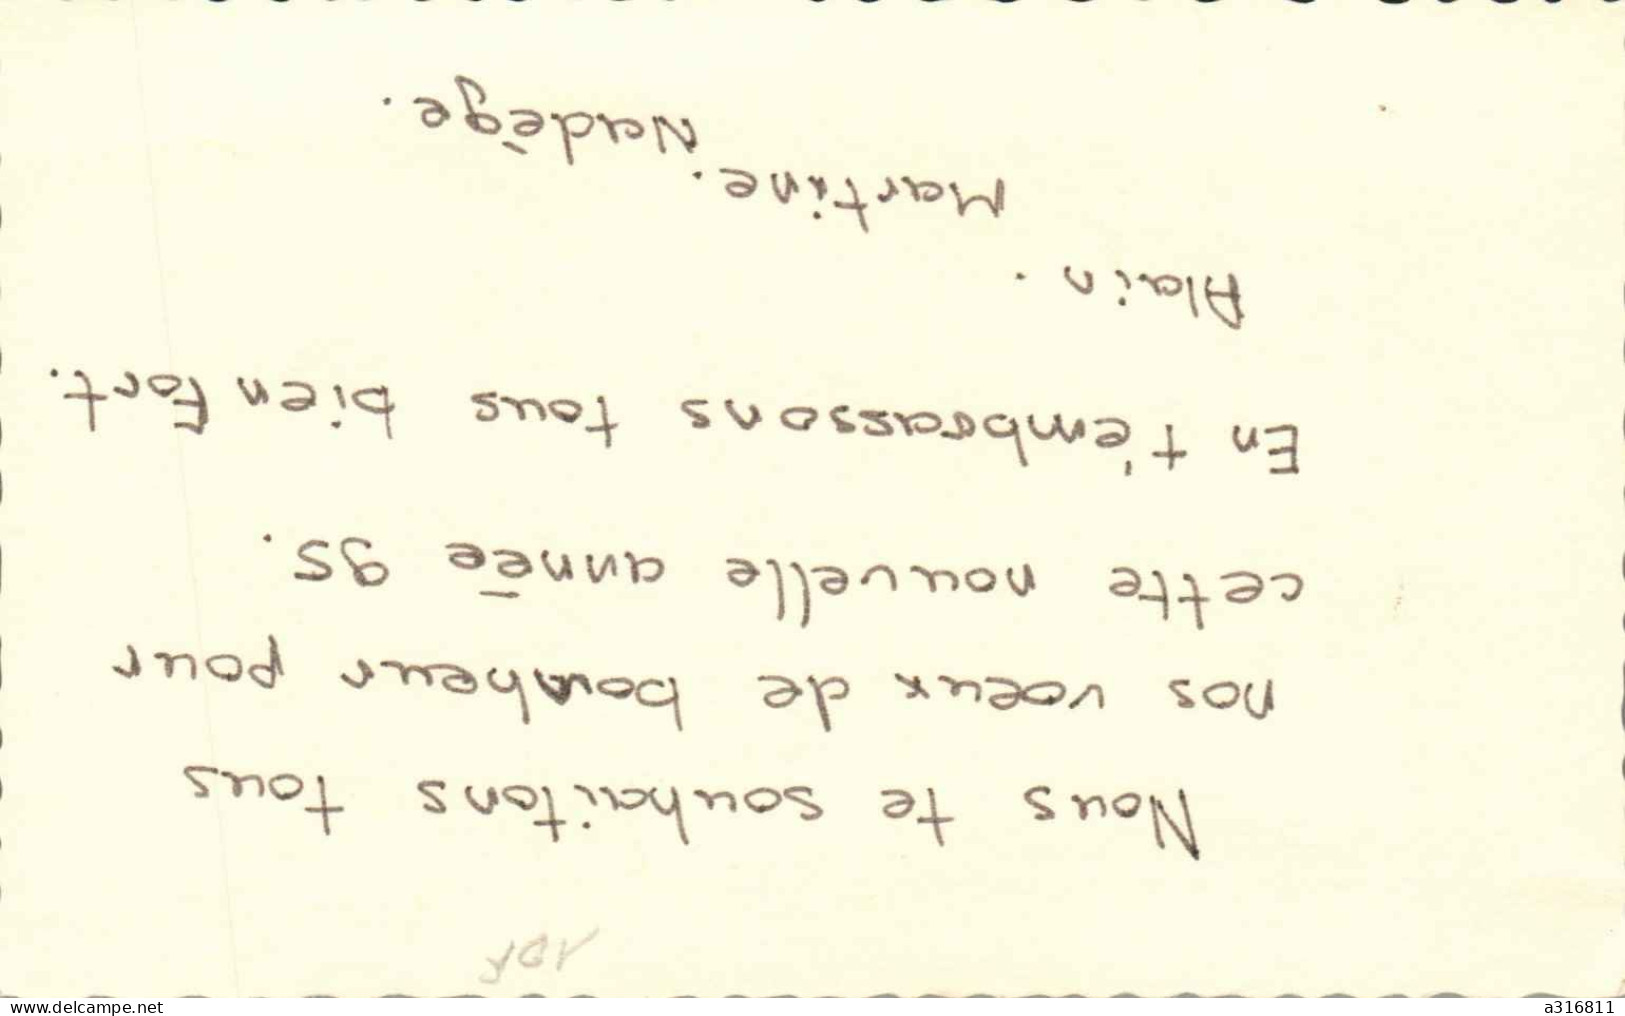 10F
Nous te souhaitons tous
nos voeux de bonheur pour
cette nouvelle année 95.
En t'embrassons tous bien fort.
Alain.
Martine.
Nadège.
www.delcampe.net
a316811